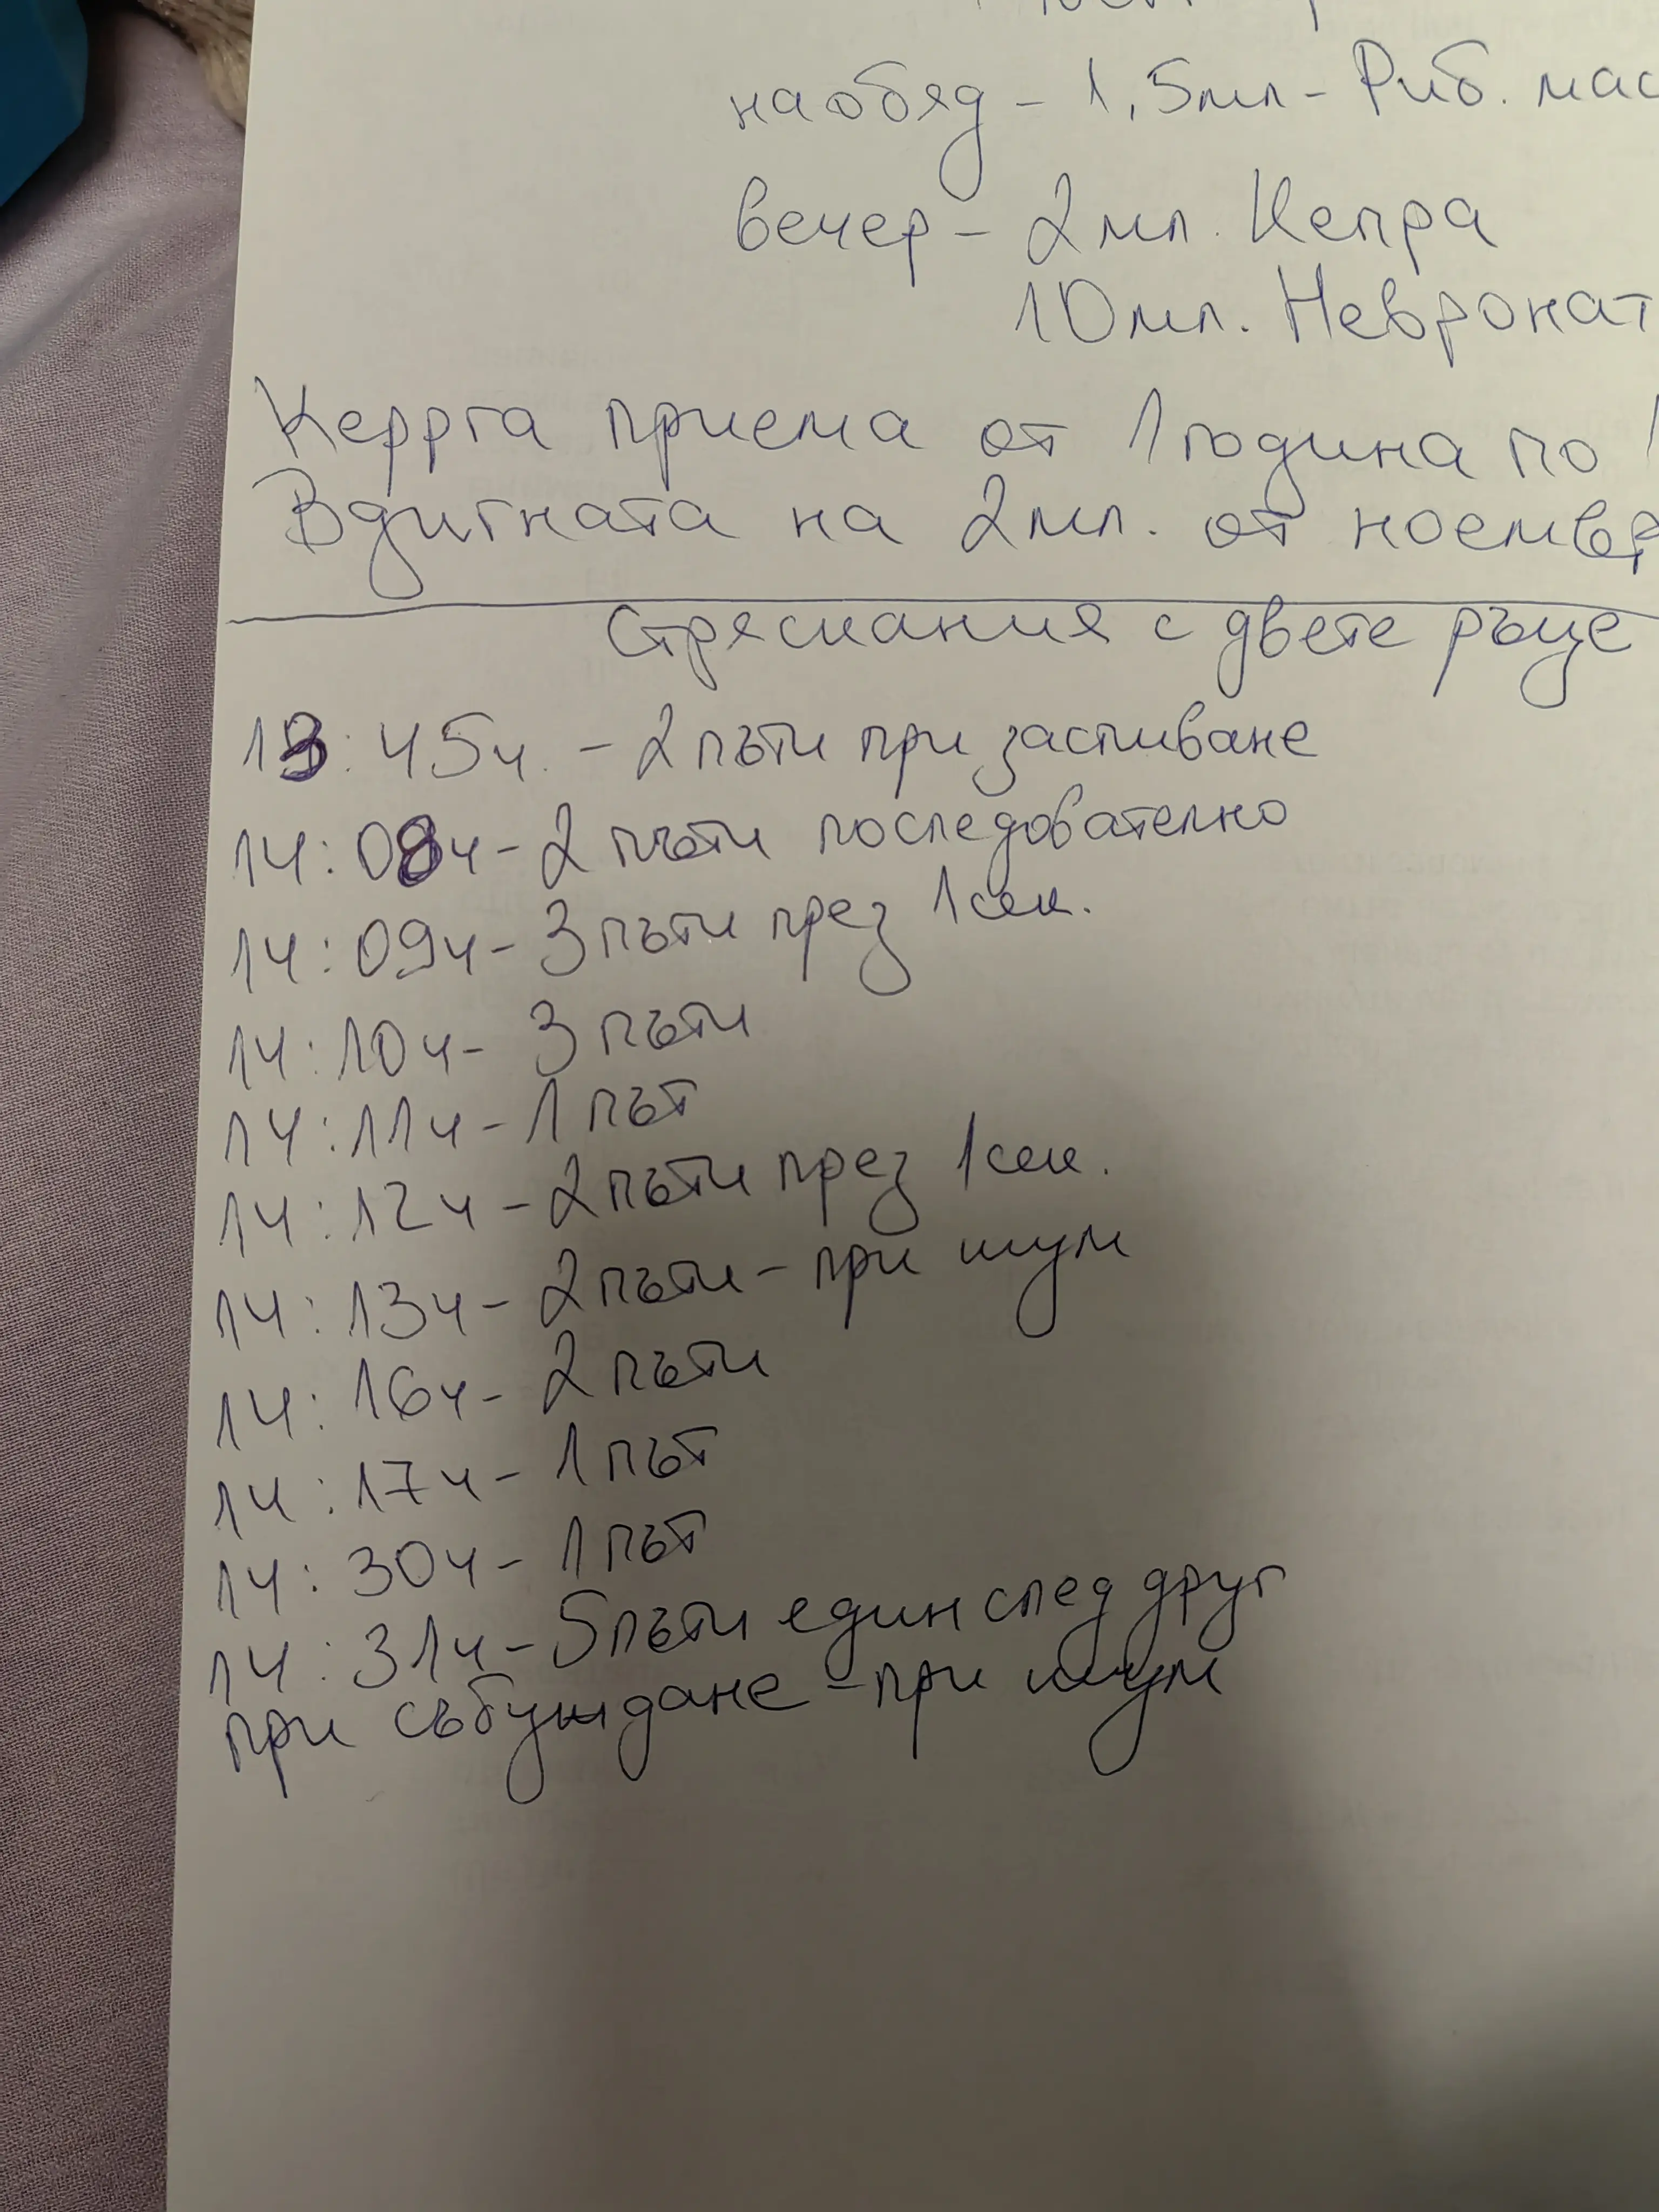 на обяд - 1,5мл - Риб. мас
вечер - 2мл. Кепра
10мл. Невронат
Keppra приема от 1 година по 1
Вдигната на 2мл. от ноемвр
Стряскания с двете ръце
13:45ч. - 2 пъти при заспиване
14:08ч - 2 пъти последователно
14:09ч - 3 пъти през 1 сек.
14:10ч - 3 пъти
14:11ч - 1 път
14:12ч - 2 пъти през 1 сек.
14:13ч - 2 пъти - при шум
14:16ч - 2 пъти
14:17ч - 1 път
14:30ч - 1 път
14:31ч - 5 пъти един след друг
при събуждане - при шум